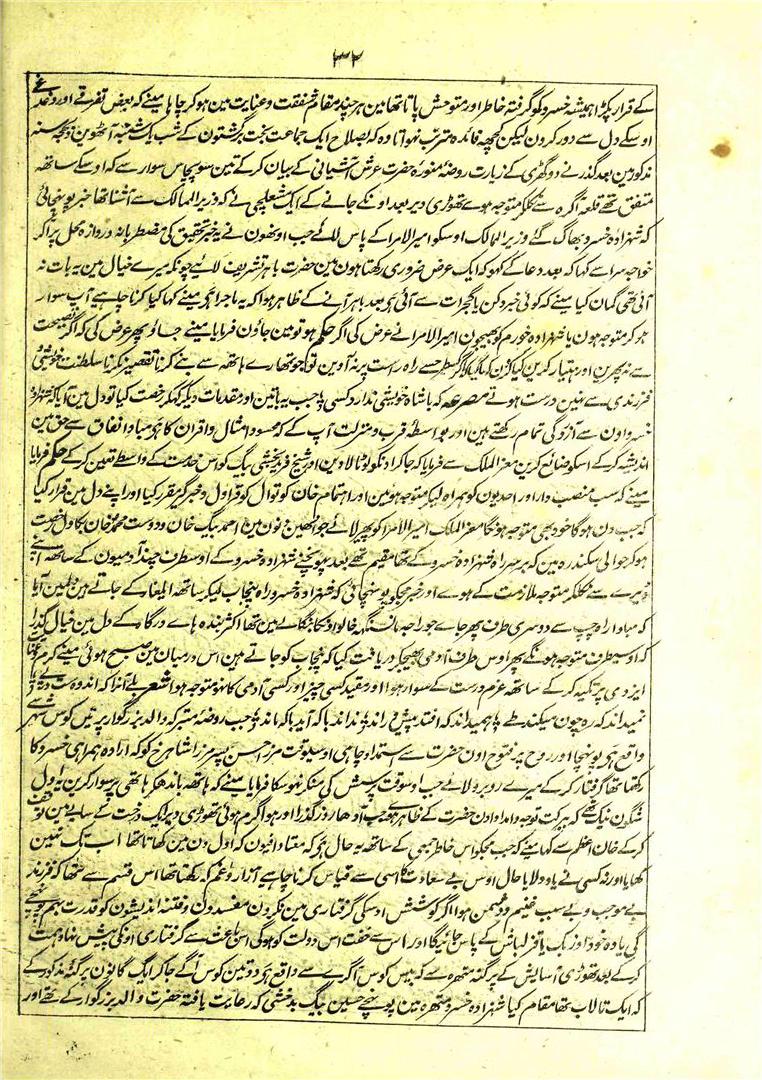 ۳۲
کے قرار پکڑا ہمیشہ خسرو کو گرفتہ خاطر اور متوحش پاتا تھا مین ہر چند مقام شفقت و عنایت مین ہو کر چاہا مینے کہ بعض تفرقے اور دغدغے
اوسکے دل سے دور کرون لیکن کچھہ فائدہ مترتب نہوا تا وہ کہ بصلاح ایک جماعت بخت برگشتون کے شب یک شنبہ آٹھوین ذیحجہ سنہ
مذکور مین بعد گذرنے دو گھڑی کے زیارت روضۂ منورہ حضرت عرش آشیانی کے بیان کر کے تین سو پچاس سوار سے کہ اوسکے ساتھہ
متفق تھے قلعہ آگرہ سے نکلکر متوجہ ہوے تھوڑی دیر بعد اونکے جانے کے ایک مشعلچی نے کہ وزیر الممالک سے آشنا تھا خبر پونہچائی
کہ شہزادہ خسرو بھاگ گئے وزیر الممالک اوسکو امیر الامرا کے پاس لائے جب اونھون نے یہ خبر تحقیق کی مضطربانہ دروازہ محل پر آکر
خواجہ سرا سے کہا کہ بعد دعا کے کہو کہ ایک عرض ضروری رکھتا ہون مین حضرت باہر تشریف لائیے چونکہ میرے خیال مین یہ بات نہ
آئی تھی گمان کیا مینے کہ کوئی خبر دکن یا گجرات سے آئی ہے بعد باہر آنے کے ظاہر ہوا کہ یہ ماجرا ہے مینے کہا کیا کرنا چاہیے آپ سوار
ہو کر متوجہ ہون یا شہزادہ خورم کو بھیجون امیر الامرا نے عرض کی اگر حکم ہو تو مین جاؤن فرمایا مینے جاؤ پھر عرض کی کہ اگر نصیحت
سے نہ پھرین اور ہتیار کرین کیا کرون کہا گیا کہ اگر کسیطرح سے راہ راست پر نہ آوین تو جو تمھارے ہاتھہ سے بنے کرنا تقصیر نکرنا سلطنت خویشی و
فرزندی سے نہین درست ہوتے مصرعہ کہ بادشاہ خویشی ندارد کسی ؛ جب یہ باتین اور مقدمات دیگر کہکر رخصت کیا تو دل مین آیا کہ شہزادہ
خسرو اون سے آزردگی تمام رکھتے ہین اور بواسطہ قرب و منزلت آپ کے کہ محسود امثال و اقران کا ہے مبادا نفاق سے حق مین
اندیشہ کر کے اسکو ضائع کرین معز الملک سے فرمایا کہ جا کر اونکو لوٹا لا وین اور شیخ فرید بخشی بیگی کو اس خدمت کے واسطے تعین کر کے حکم فرمایا
مینے کہ سب منصب دار اور احدیون کو ہمراہ لیکر متوجہ ہوئین اور اہتمام خان کوتوال کو قراول و خبرگیر مقرر کیا اور اپنے دل مین قرار کیا
کہ جب دن ہوگا خود بھی متوجہ ہونگا معز الملک امیر الامرا کو پھیر لائے جو انھین دنون مین احمد بیگ خان و دوست محمد خان کابل رخصت
ہو کر حوالی سکندرہ مین کہ بر سر راہ شہزادہ خسرو کے تھا مقیم تھے بعد پونہچنے شہزادہ خسرو کے اوسطرف چند آدمیون کے ساتھہ اپنے
ڈیرے سے نکلکر متوجہ ملازمت کے ہوے اور خبر مجکو پونہچائی کہ شہزادہ خسرو راہ پنجاب لیکر ساتھہ ایلغار کے جاتے ہین دلمین آیا
کہ مبادا راہ چپ سے دوسری طرف پھر جاے جو راجہ مانسنگھ خالو اونکا بنگالے مین تھا اکثر بندہ ہاے درگاہ کے دل مین خیال گذرا
کہ اوسیطرف متوجہ ہونگے پھر اوس طرف آدمی بھیجکر دریافت کیا کہ پنجاب کو جاتے ہین اس درمیان مین صبح ہوئی مینے کرم و عنایت
ایزدی پر تکیہ کر کے ساتھہ عزم درست کے سوار ہوا اور مقید کسی چیز اور کسی آدمی کا نہو متوجہ ہوا شعر بلے آنرا کہ اندوہ ست در پے ؛
نمیداند کہ رہ چون میکند طے ؛ ہمیداند کہ افتد پیش و راند ؛ نداند با کہ آید با کہ ماند ؛ جب روضۂ متبرکہ والد بزرگوار پر تین کوس شہر سے
واقع ہے پونہچا اور روح پر فتوح اون حضرت سے استمداد چاہی اوسیوقت مرزا حسن پسر مرزا شاہرخ کو کہ ارادہ ہمراہی خسرو کا
رکھتا تھا گرفتار کر کے میرے روبرو لائے جب اوسوقت پرسش کی منکر نہو سکا فرمایا مینے کہ ہاتھہ باندھکر ہاتھی پر سوار کرین یہ اول
شگون نیک تھا کہ برکت توجہ و امداد اون حضرت کے ظاہر ہوے جب آدھا روز گذرا اور ہوا گرم ہوئی تھوڑی دیر ایک درخت کے سایے مین توقف
کر کے خان اعظم سے کہا مینے کہ جب مجکو اس خاطر جمعی کے ساتھہ یہ حال ہے کہ معتاد افیون کہ اول دن مین کھاتا تھا اب تک نہین
کھایا اور نہ کسی نے یاد دلایا حال اوس بے سعادت کا اسی سے قیاس کرنا چاہیے آزار و غم کہ رکھتا تھا اس قسم سے تھا کہ فرزند
بے موجب و بے سبب غنیم و دشمن ہوا اگر کوشش اوسکی گرفتاری مین نکرون مفسدون و فتنہ اندیشون کو قدرت بہم پونہچے
گی یا وہ خود اوزبک یا قزلباش کے پاس جائیگا اور اس سے خفت اس دولت کو ہوگی اس باعث سے گرفتاری اونکی پیش نہاد ہمت
کر کے بعد تھوڑی آسایش کے پرگنہ متھرہ سے کہ بیس کوس آگرے سے واقع ہے دو تین کوس آگے جاکر ایک گانون پرگنہ مذکور کے
کہ ایک تالاب تھا مقام کیا شہزادہ خسرو متھرہ مین پونہچے حسین بیگ بدخشی کہ رعایت یافتہ حضرت والد بزرگوار کے تھے اور